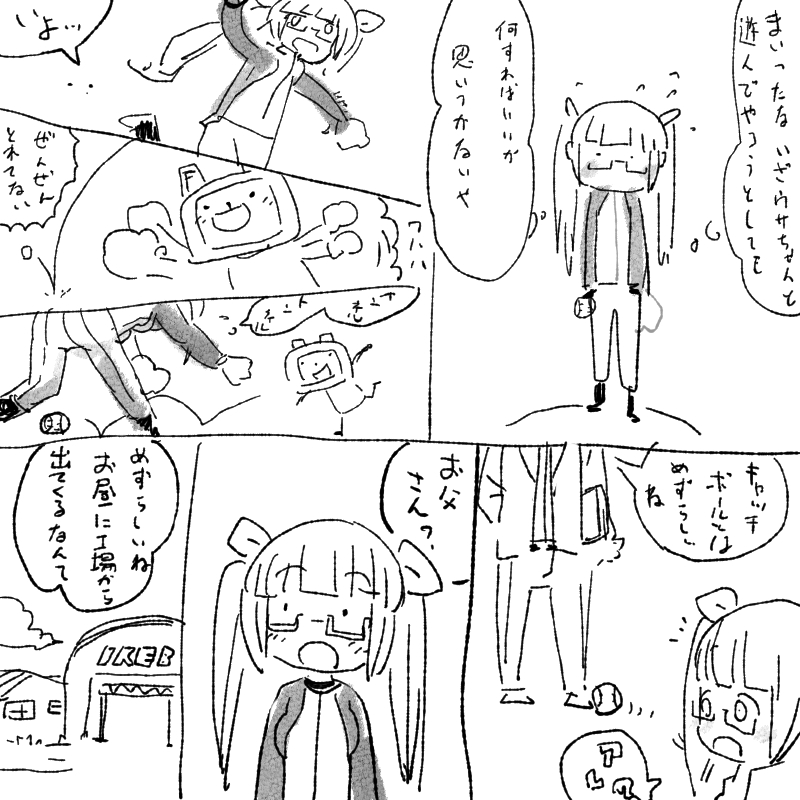 まいったな いざウサちゃんと
遊んでやろうとしても
何すればいいか
思いつかないや
いよ…
ぜんぜん
とれてない
ワハハ
F
キャッチ
ボールとは
めずらしい
ね
アレッ
お父
さん?
めずらしいね
お昼に工場から
出てくるなんて
IKEB